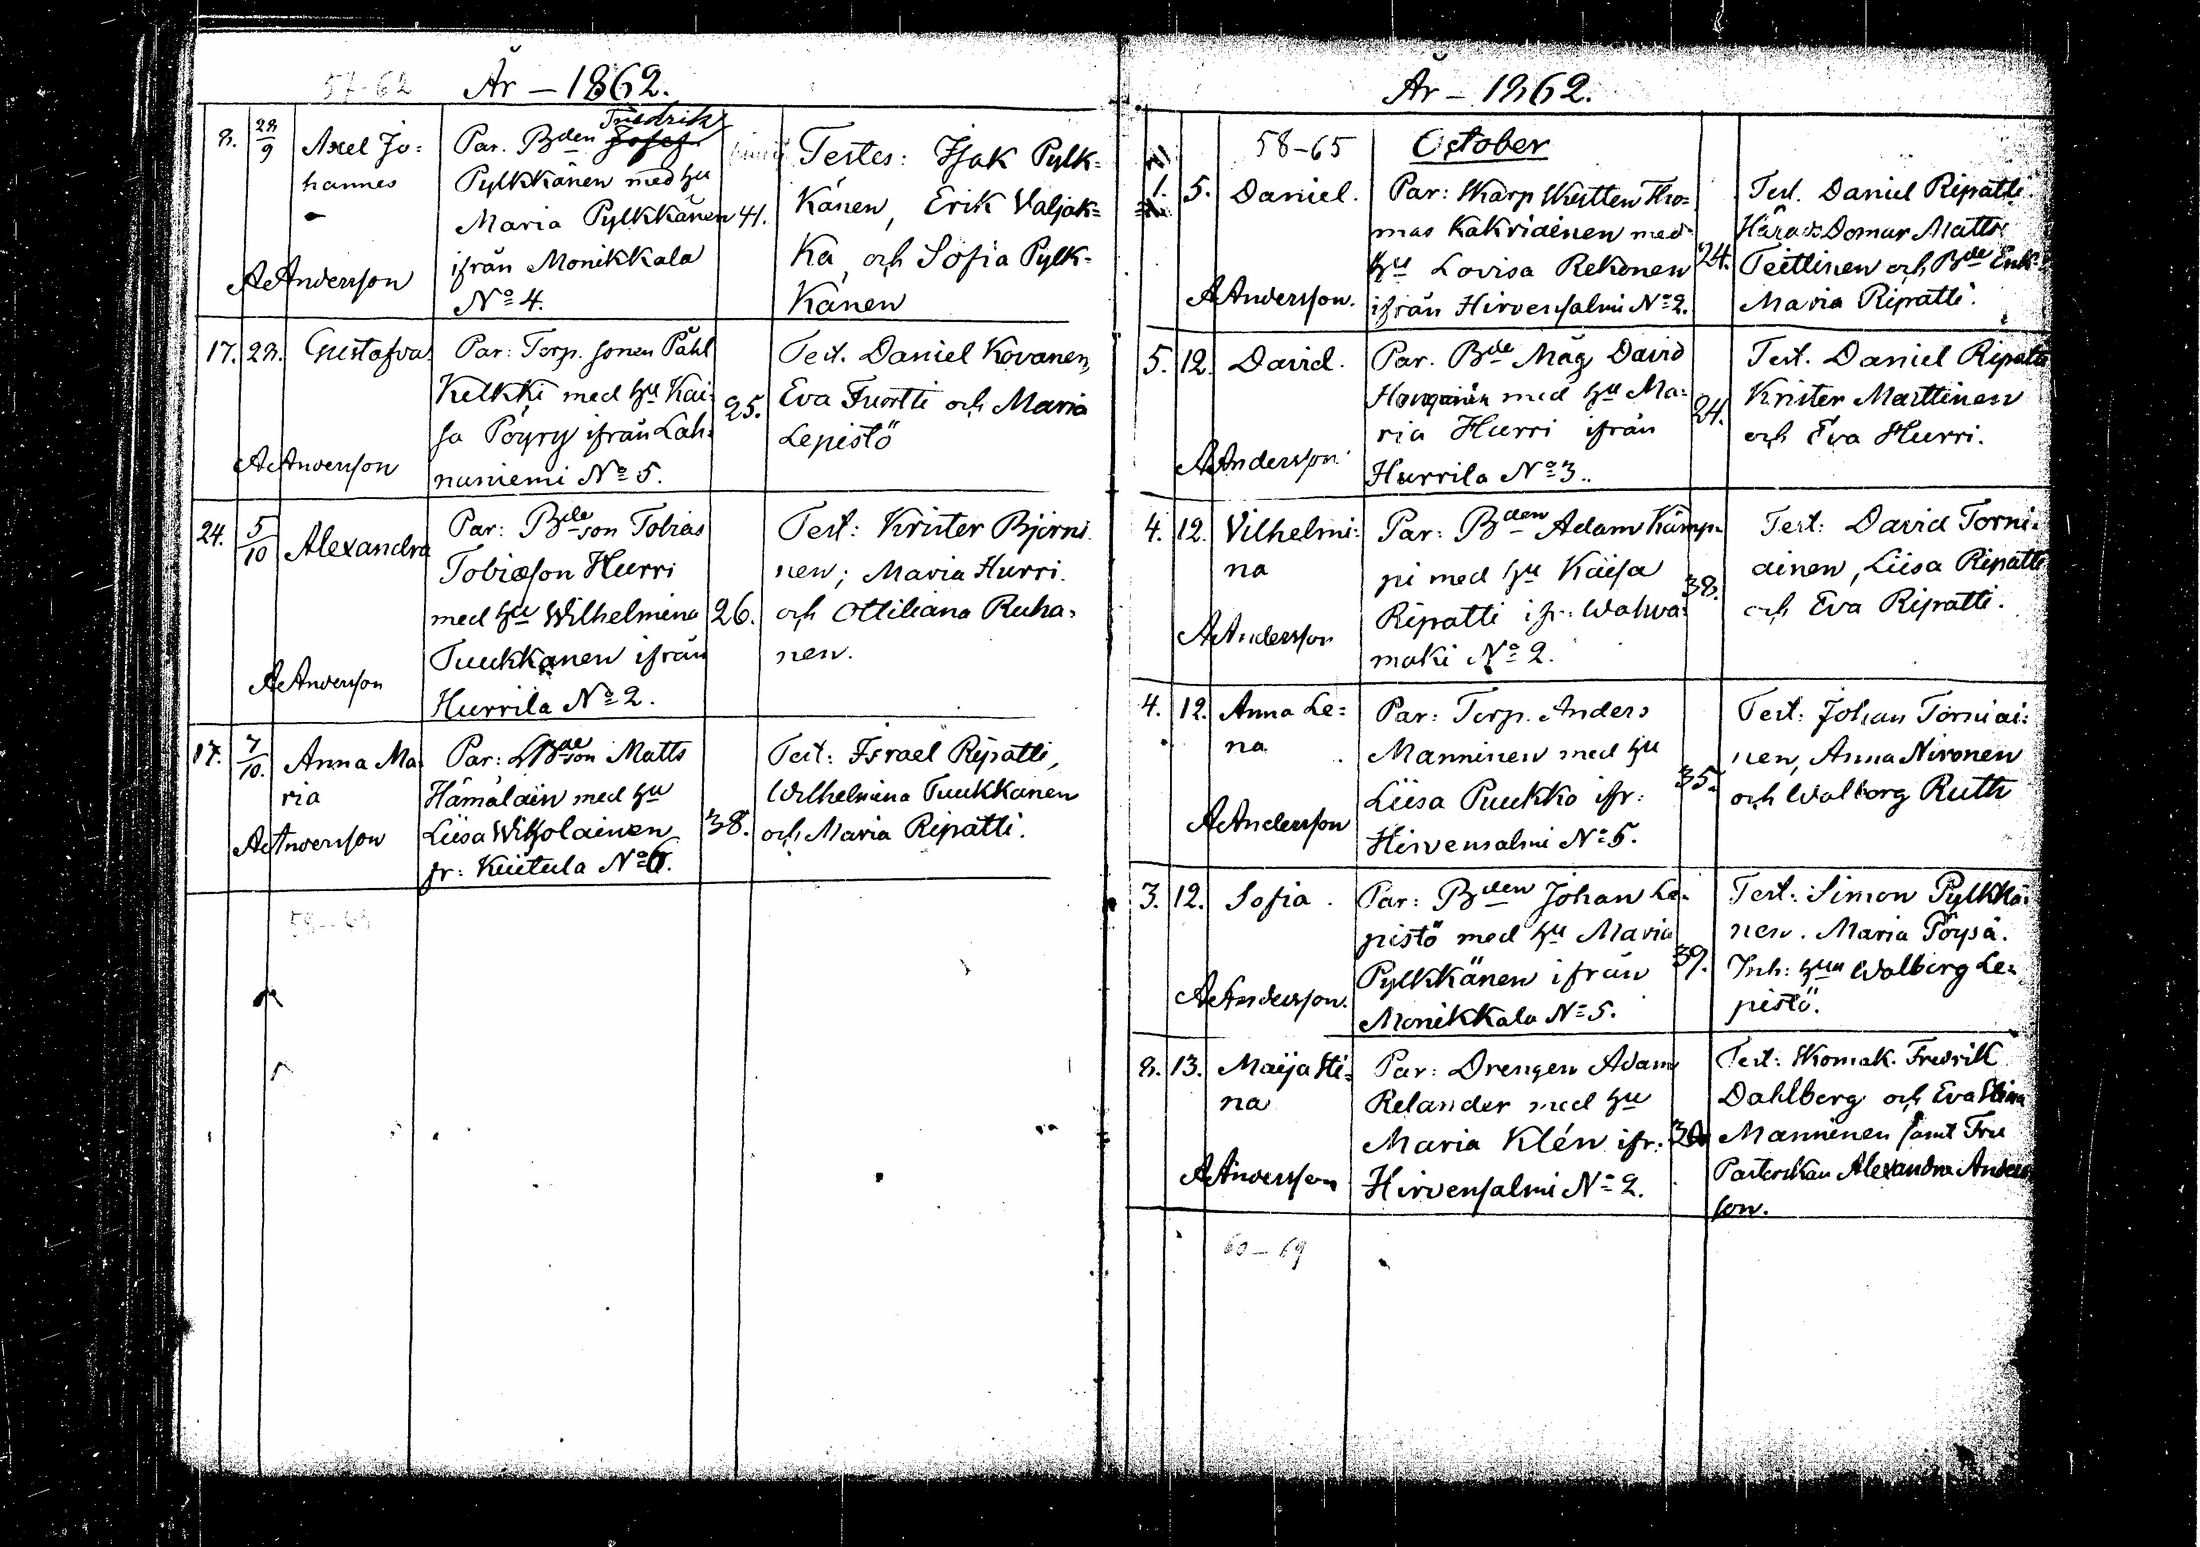 57-62 År – 1862.
8. 28/9 Axel Jo:
hannes
Par. Bden Josef Friedrik
Pylkkänen med hu
Maria Pylkkänen 41.
ifrån Monikkala
No 4.
A Andersson
Testes: Isak Pylk=
känen, Erik Valjak=
ka, och Sofia Pylk=
känen
17. 28. Gustafva
Par: Torp. sonen Påhl
Kelkki med hu Kai:
sa Pöyry ifrån Lah: 25.
naniemi No 5.
A Andersson
Test. Daniel Kovanen,
Eva Tuortti och Maria
Lepistö
24. 5/10 Alexandra
Par: Bde son Tobias
Tobiasson Hurri
med hu Wilhelmina 26.
Tuukkanen ifrån
Hurrila No 2.
A Andersson
Test: Krister Björni
nen; Maria Hurri
och Ottiliana Ruha=
nen.
17. 7/10. Anna Ma
ria
Par: LBde son Matts
Hämäläin med hu
Liisa Wiholainen 38.
fr: Kiitula No 6.
A Andersson
Test: Israel Ripatti,
Wilhelmina Tuukkanen
och Maria Ripatti.
År – 1862.
58-65 October
1. 5. Daniel.
Par: Skarp Skytten Tho=
mas Kakriainen med
hu Lovisa Rekonen 24.
ifrån Hirvensalmi No 2.
A Andersson.
Test. Daniel Ripatti
Härads Domar Matts
Teittinen och Bde Enk:
Maria Ripatti.
5. 12. David.
Par. Bde Måg David
med hu Ma:
ria Hurri ifrån 24.
Hurrila No 3.
A Andersson
Test. Daniel Ripatti
Krister Marttinen
och Eva Hurri.
4. 12. Vilhelmi:
na
Par: Bden Adam Kämp=
pi med hu Kaisa
Ripatti ifr: Wahva: 38.
maki No 2.
A Andersson
Test: David Torni:
ainen, Liisa Ripatti
och Eva Ripatti.
4. 12. Anna Le:
na
Par: Torp. Anders
Manninen med hu
Liisa Puukko ifr: 35.
Hirvensalmi No 5.
A Andersson
Test: Johan Torniai:
nen, Anna Nironen
och Walborg Ruth
3. 12. Sofia
Par: Bden Johan Le:
pistö med hu Maria
Pylkkänen ifrån 39.
Monikkala No 5.
A Andersson.
Test: Simon Pylkkä:
nen. Maria Pöysä.
Inh: hun Walborg Le:
pistö.
8. 13. Maija Sti:
na
Par: Drengen Adam
Relander med hu
Maria Klén ifr:
Hirvensalmi No 2.
A Andersson
Test: Skomak. Fredrik
Dahlberg och Eva Stina
Manninen samt Fru
Pastorskan Alexandra Anders
son.
60-69